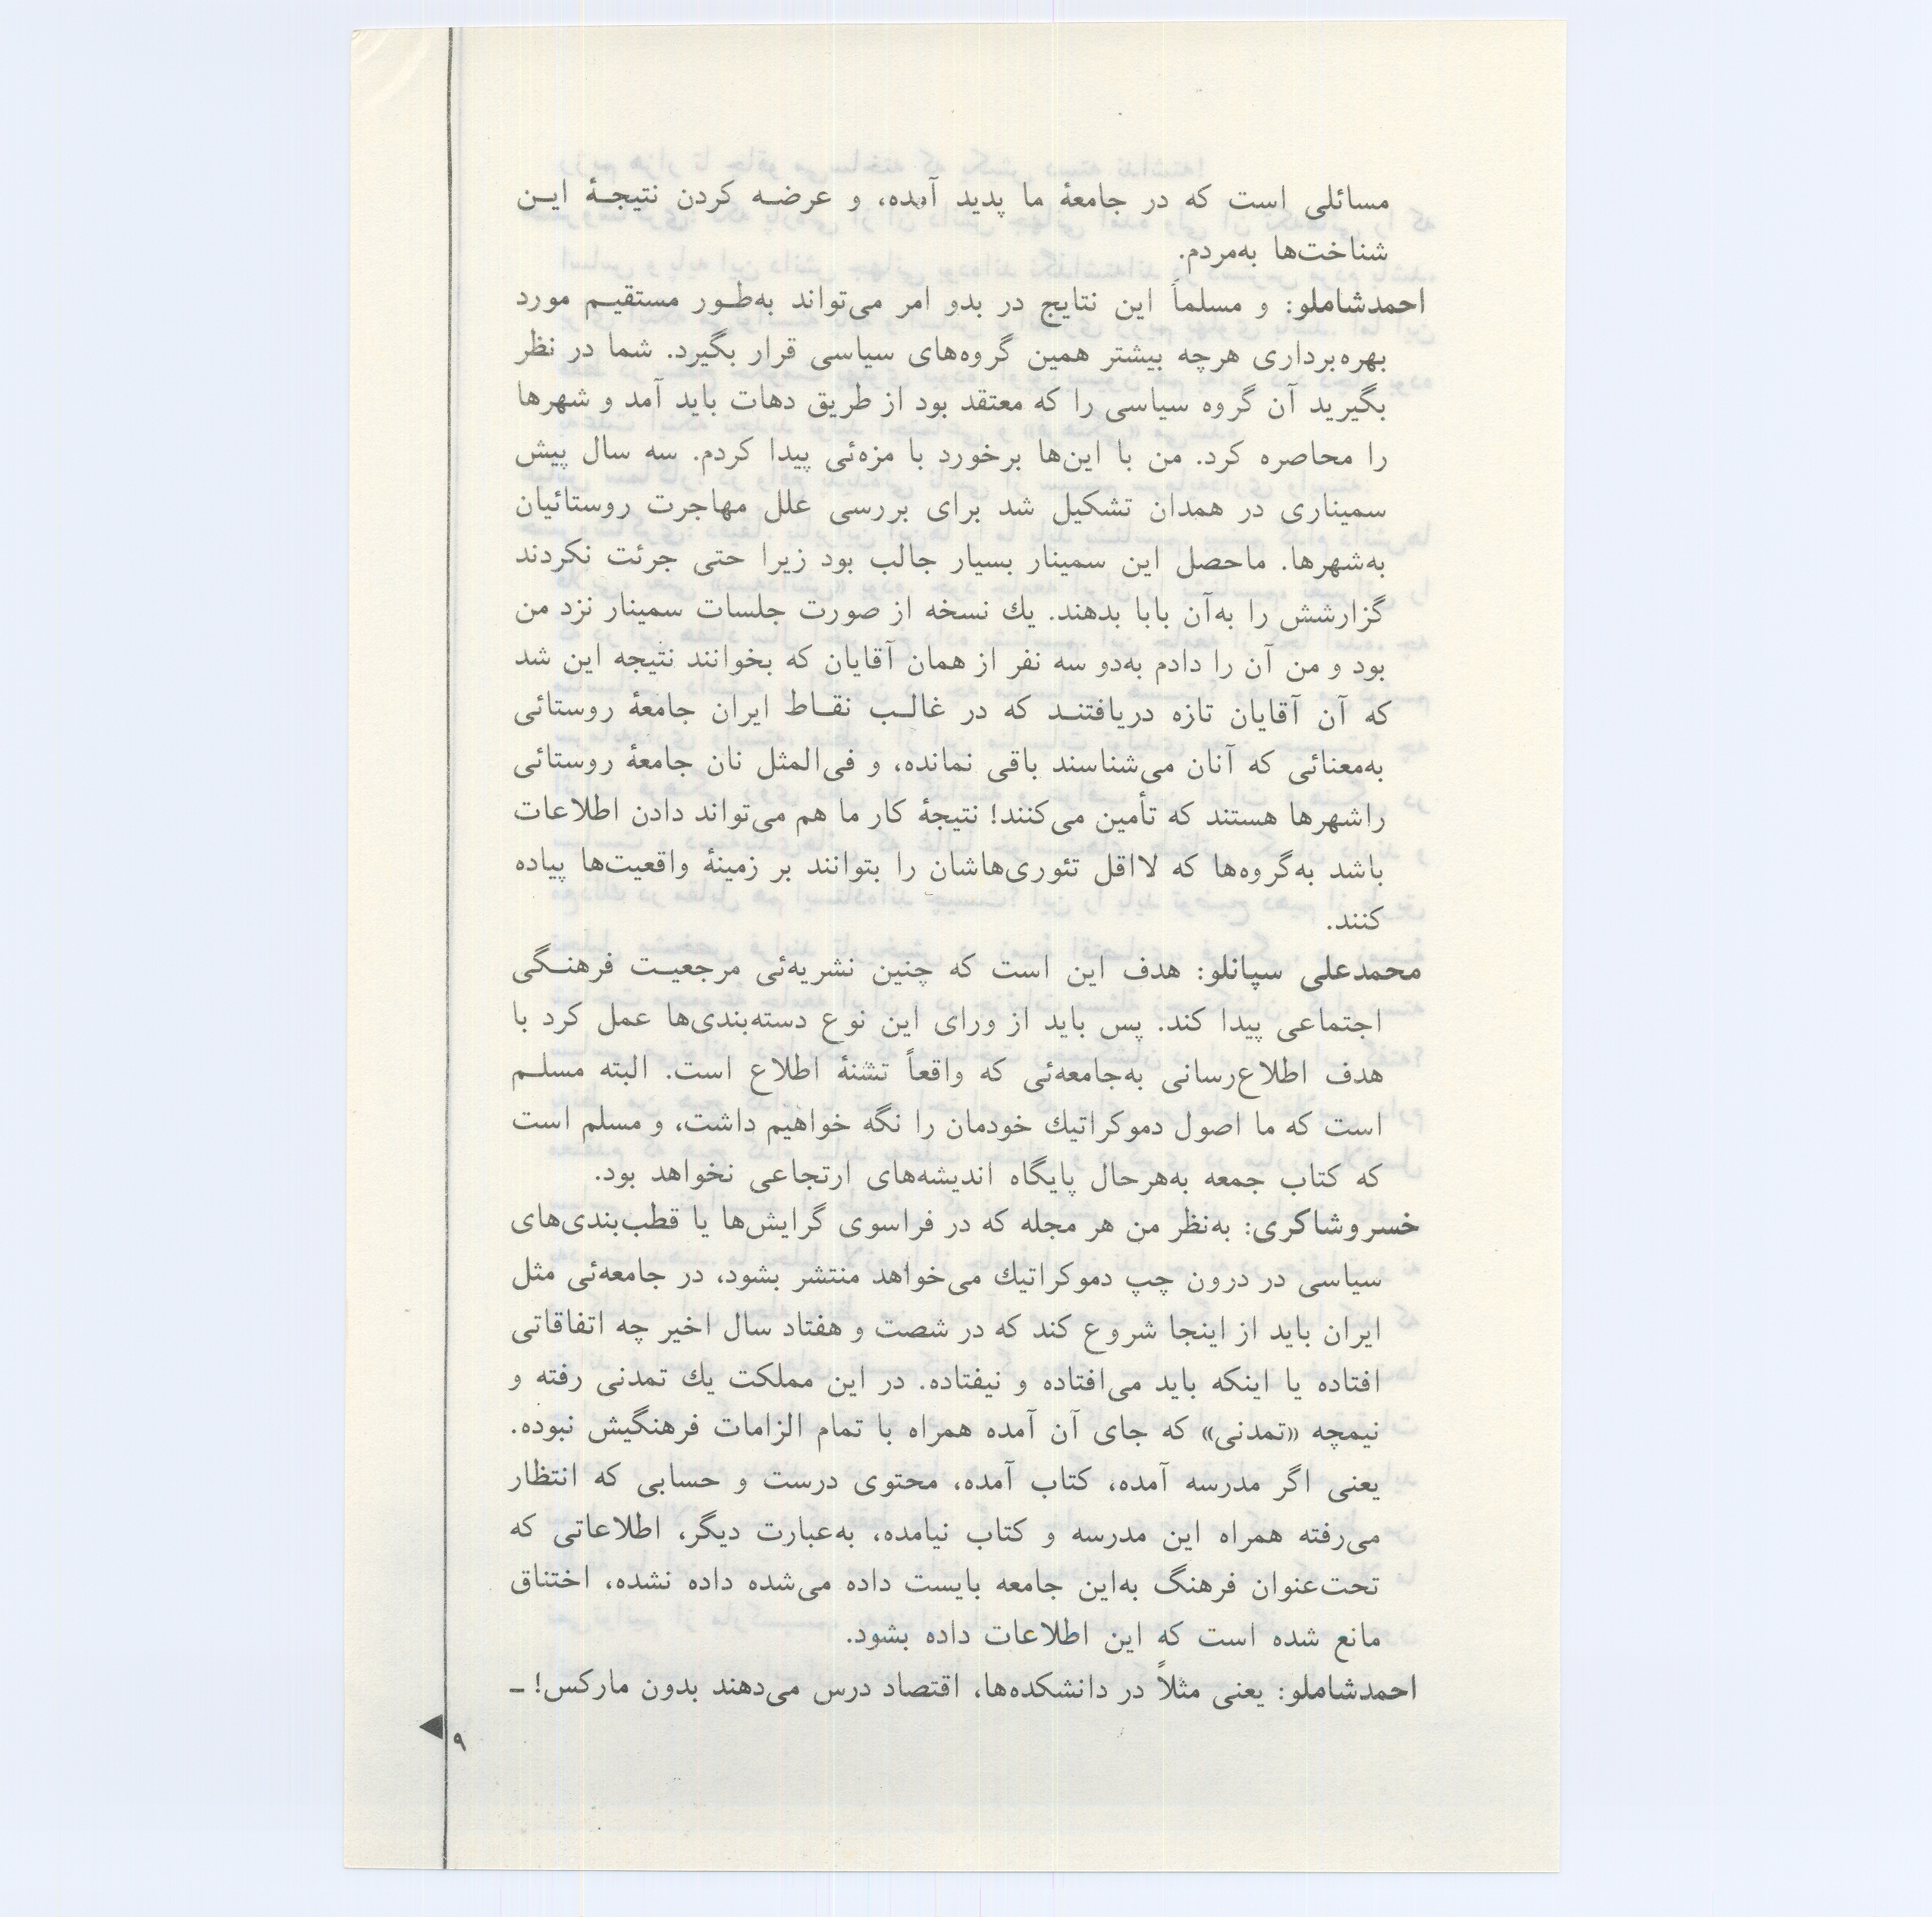 مسائلی است که در جامعهٔ ما پدید آمده، و عرضه کردن نتیجهٔ این
شناخت‌ها به‌مردم.
احمدشاملو: و مسلماً این نتایج در بدو امر می‌تواند به‌طور مستقیم مورد
بهره‌برداری هرچه بیشتر همین گروه‌های سیاسی قرار بگیرد. شما در نظر
بگیرید آن گروه سیاسی را که معتقد بود از طریق دهات باید آمد و شهرها
را محاصره کرد. من با این‌ها برخورد با مزه‌ئی پیدا کردم. سه سال پیش
سمیناری در همدان تشکیل شد برای بررسی علل مهاجرت روستائیان
به‌شهرها. ماحصل این سمینار بسیار جالب بود زیرا حتی جرئت نکردند
گزارشش را به‌آن بابا بدهند. یك نسخه از صورت جلسات سمینار نزد من
بود و من آن را دادم به‌دو سه نفر از همان آقایان که بخوانند نتیجه این شد
که آن آقایان تازه دریافتند که در غالب نقاط ایران جامعهٔ روستائی
به‌معنائی که آنان می‌شناسند باقی نمانده، و فی‌المثل نان جامعهٔ روستائی
راشهرها هستند که تأمین می‌کنند! نتیجهٔ کار ما هم می‌تواند دادن اطلاعات
باشد به‌گروه‌ها که لااقل تئوری‌هاشان را بتوانند بر زمینهٔ واقعیت‌ها پیاده
کنند.
محمدعلی سپانلو: هدف این است که چنین نشریه‌ئی مرجعیت فرهنگی
اجتماعی پیدا کند. پس باید از ورای این نوع دسته‌بندی‌ها عمل کرد با
هدف اطلاع‌رسانی به‌جامعه‌ئی که واقعاً تشنهٔ اطلاع است. البته مسلم
است که ما اصول دموکراتیك خودمان را نگه خواهیم داشت، و مسلم است
که کتاب جمعه به‌هرحال پایگاه اندیشه‌های ارتجاعی نخواهد بود.
خسروشاکری: به‌نظر من هر مجله که در فراسوی گرایش‌ها یا قطب‌بندی‌های
سیاسی در درون چپ دموکراتیك می‌خواهد منتشر بشود، در جامعه‌ئی مثل
ایران باید از اینجا شروع کند که در شصت و هفتاد سال اخیر چه اتفاقاتی
افتاده یا اینکه باید می‌افتاده و نیفتاده. در این مملکت یك تمدنی رفته و
نیمچه «تمدنی» که جای آن آمده همراه با تمام الزامات فرهنگیش نبوده.
یعنی اگر مدرسه آمده، کتاب آمده، محتوی درست و حسابی که انتظار
می‌رفته همراه این مدرسه و کتاب نیامده، به‌عبارت دیگر، اطلاعاتی که
تحت‌عنوان فرهنگ به‌این جامعه بایست داده می‌شده داده نشده، اختناق
مانع شده است که این اطلاعات داده بشود.
احمدشاملو: یعنی مثلاً در دانشکده‌ها، اقتصاد درس می‌دهند بدون مارکس! ـ
۹